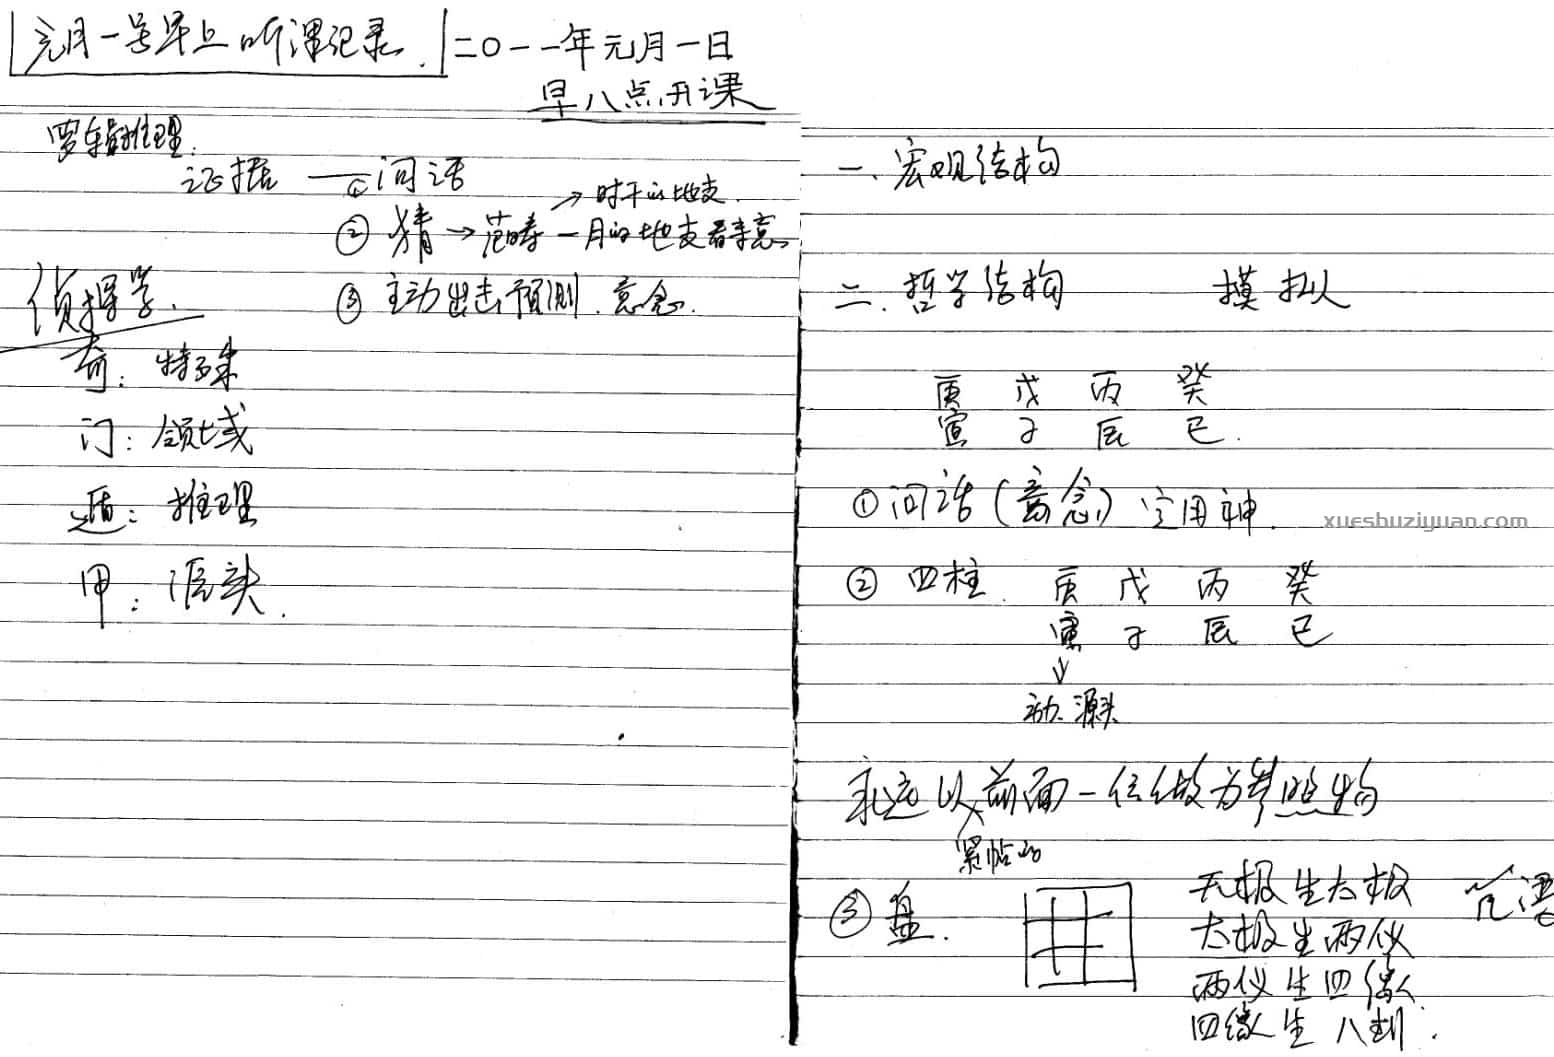 元月一号早上听课记录.
二〇一一年元月一日
早八点开课
罗辑推理:
证据 —①问话
→时干的地支.
② 猜→范畴 — 月的地支看来意
③ 主动出击预测.意念.
侦探学.
奇: 特殊
门: 领域
遁: 推理
甲: 源头.
一. 宏观结构
二. 哲学结构 模拟
庚 戊 丙 癸
寅 子 辰 巳.
①问话(意念)定用神.
xueshuziyuan.com
② 四柱. 庚 戊 丙 癸
寅 子 辰 巳
↓
动.源头
永远以前面一位做为参照物
紧帖的
③ 盘.
无极生太极
太极生两仪
两仪生四象
四象生八卦.